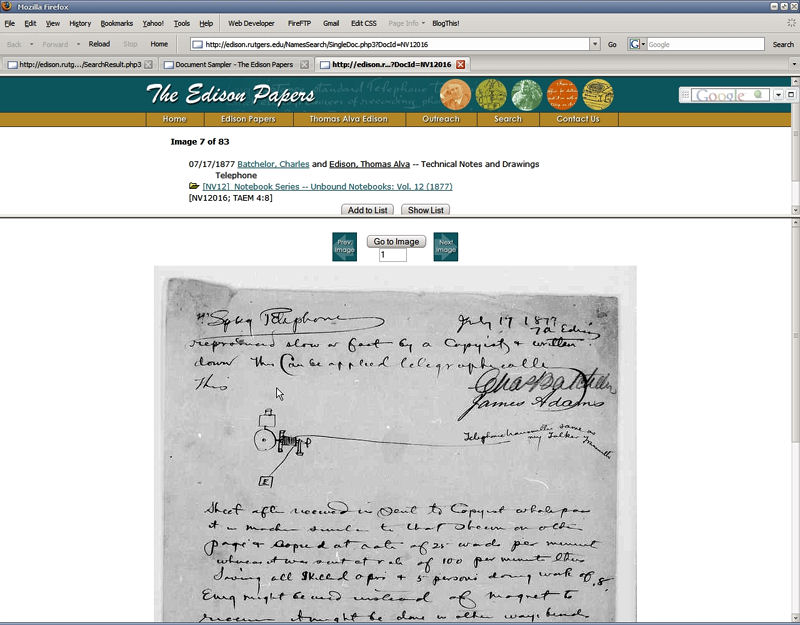 Mozilla Firefox
File Edit View History Bookmarks Yahoo! Tools Help Web Developer FireFTP Gmail Edit CSS Page Info BlogThis!
Back Forward Reload Stop Home http://edison.rutgers.edu/NamesSearch/SingleDoc.php3?DocId=NV12016 Go Google Search
http://edison.rutg.../SearchResult.php3 Document Sampler - The Edison Papers http://edison.r...?DocId=NV12016
The Edison Papers Google
Home Edison Papers Thomas Alva Edison Outreach Search Contact Us
Image 7 of 83
07/17/1877 Batchelor, Charles and Edison, Thomas Alva -- Technical Notes and Drawings
Telephone
[NV12] Notebook Series -- Unbound Notebooks: Vol. 12 (1877)
[NV12016; TAEM 4:8]
Add to List Show List
Prev Image Go to Image Next Image
1
Spkg Telephone July 17 1877
T A Edison
reproduced slow or fast by a Copyist & written
down This Can be applied telegraphically
This
Chas Batchelor
James Adams
Telephone transmitter same as
my Talker Transmitter
E
Sheet after received is sent to Copyist who
it in machine similar to that shown on other
page & copied at rate of 25 words per minute
whereas it was sent at rate of 100 per minute thus
Saving all Skilled oprs & 5 persons doing work of 8
Emg might be used instead of magnet to
receive It might be done in other ways